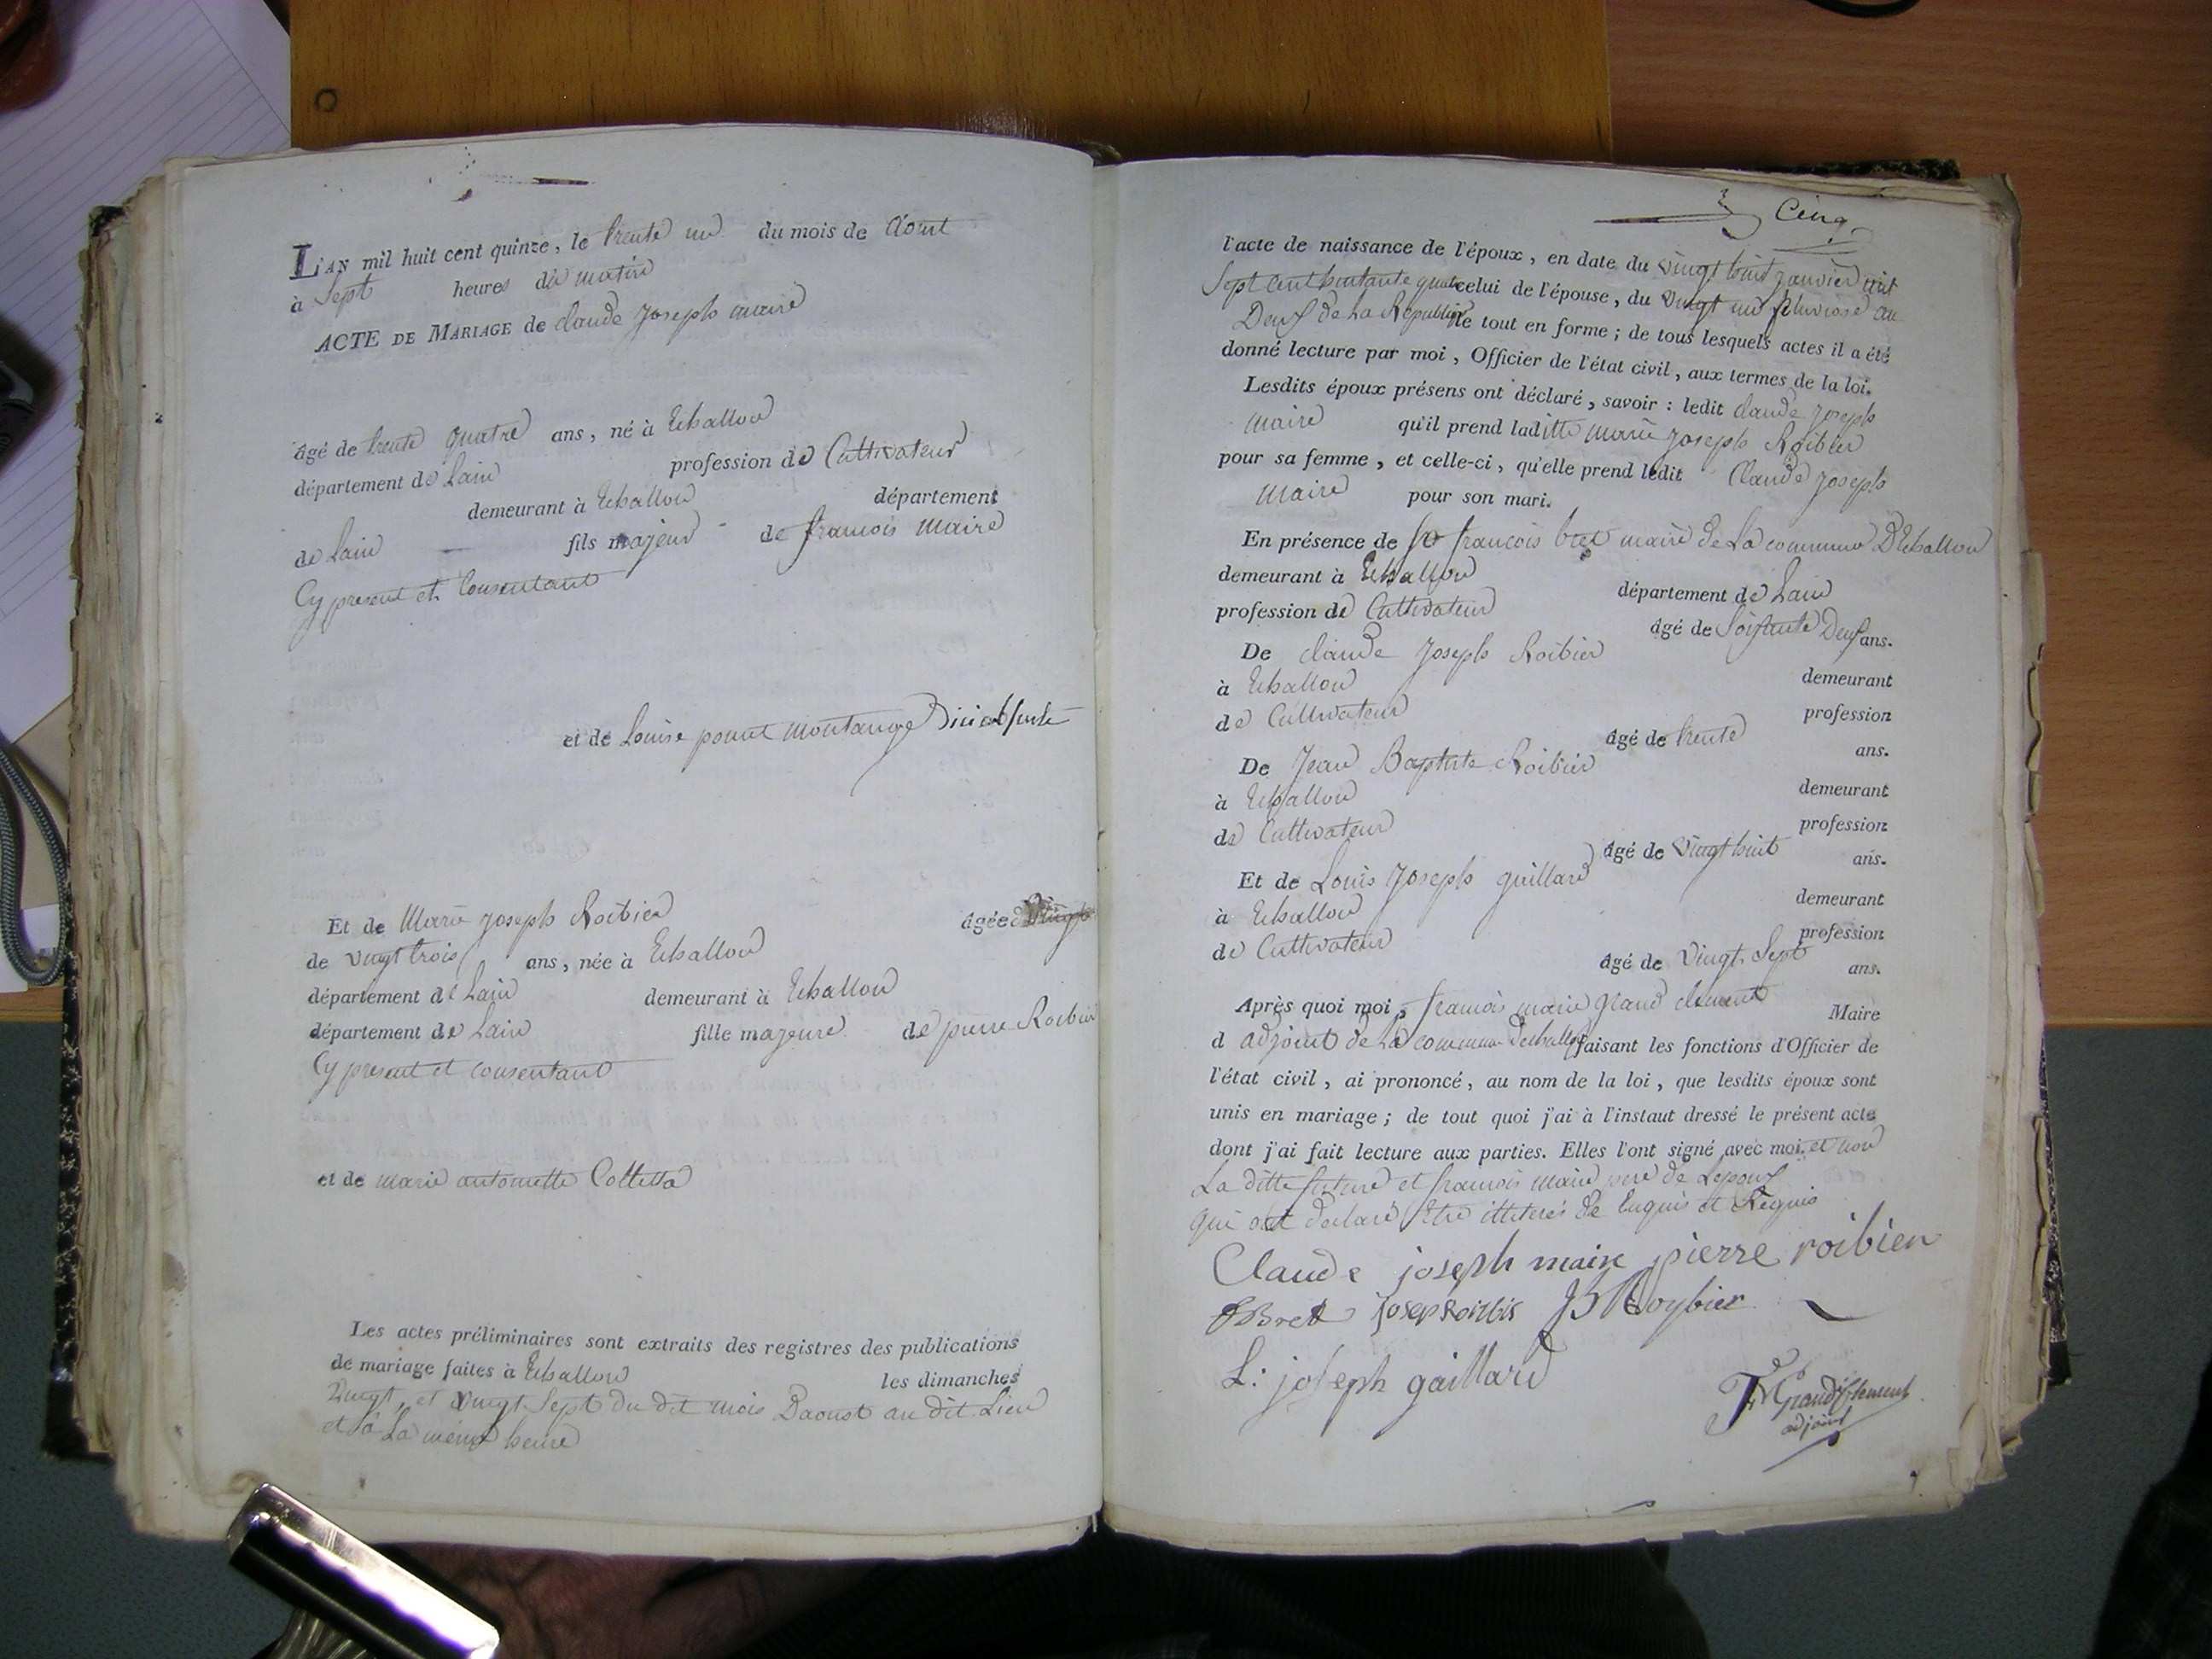 L'AN mil huit cent quinze, le trente un du mois de Aout
à Sept heures du matin
ACTE DE MARIAGE de claude Joseph maire
âgé de trente quatre ans, né à Echallon
département de Lain profession de Cultivateur
demeurant à Echallon département
de Lain fils majeur de francois maire
Cy present et Consentant
et de Louise ponnet montange
Et de Marie joseph Roibier âgée
de vingt trois ans, née à Echallon
département de Lain demeurant à Echallon
département de Lain fille majeure de pierre Roibier
Cy present et consentant
et de marie antoinette Colletta
Les actes préliminaires sont extraits des registres des publications
de mariage faites à Echallon les dimanches
Vingt, et Vingt Sept du dit mois Daoust au dit Lieu
et à La même heure
Cinq
l'acte de naissance de l'époux, en date du vingt huit janvier mil
Sept cent huitante quatre celui de l'épouse, du vingt un pluviose an
Deux de La Republique le tout en forme ; de tous lesquels actes il a été
donné lecture par moi, Officier de l'état civil, aux termes de la loi.
Lesdits époux présens ont déclaré, savoir : ledit claude joseph
maire qu'il prend laditte marie joseph Roibier
pour sa femme, et celle-ci, qu'elle prend ledit Claude joseph
Maire pour son mari.
En présence de francois bret maire de La commune DEchallon
demeurant à Echallon département de Lain
profession de Cultivateur âgé de Soixante Deux ans.
De claude joseph Roibier demeurant
à Echallon profession
de Cultivateur âgé de trente ans.
De Jean Baptiste Roibier demeurant
à Echallon profession
de Cultivateur âgé de vingt huit ans.
Et de Louis joseph gaillard demeurant
à Echallon profession
de Cultivateur âgé de Vingt Sept ans.
Après quoi moi, francois marie grand clement Maire
d adjoint de La commune dechallon faisant les fonctions d'Officier de
l'état civil, ai prononcé, au nom de la loi, que lesdits époux sont
unis en mariage ; de tout quoi j'ai à l'instaut dressé le présent acte
dont j'ai fait lecture aux parties. Elles l'ont signé avec moi. et non
La ditte future et francois maire pere de Lepoux
qui ont declaré Etre illiterés de Enquis et Requis
Claude joseph maire pierre roibier
Bret JB Roybier
L: joseph gaillard
Grandclement
adjoint